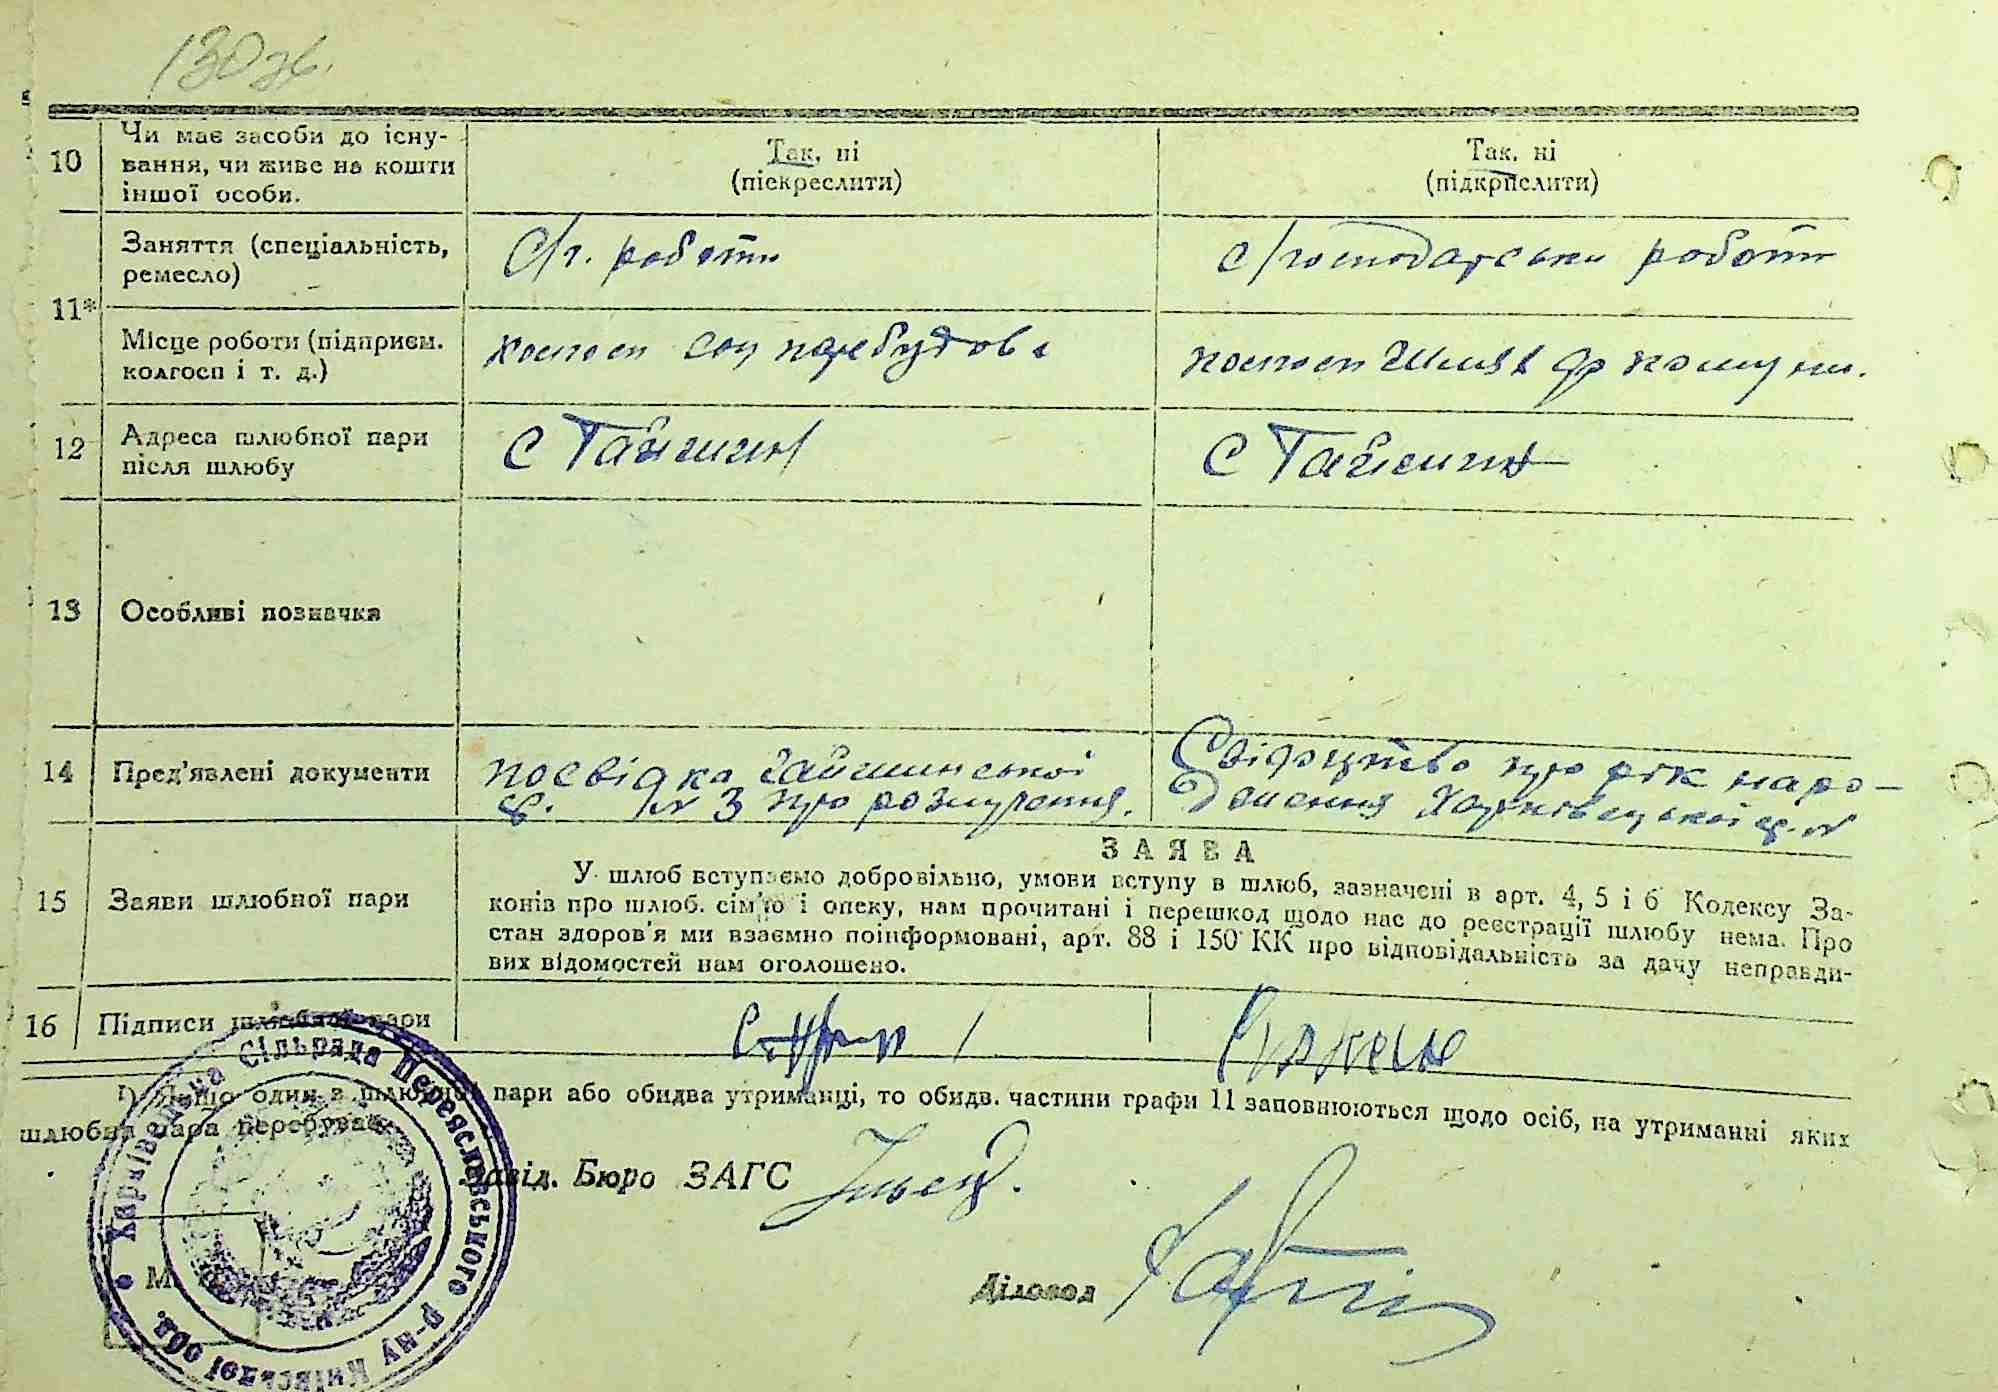 130 зв.
10
Чи має засоби до існу-
вання, чи живе на кошти
іншої особи.
Так, ні
(піекреслити)
Так, ні
(підкрпслити)
11*
Заняття (спеціальність,
ремесло)
С/г. роботи
с/господарськи роботи
Місце роботи (підприєм.
колгосп і т. д.)
колгосп соц перебудова
колгосп Шлях до комуни.
12
Адреса шлюбної пари
після шлюбу
С Гайшин
С Гайшин
13
Особливі позначки
14
Пред'явлені документи
посвідка Гайшинської
с. № 3 про розлучення.
Свідоцтво про рік наро-
дження Харківецької с. №
15
Заяви шлюбної пари
ЗАЯВА
У шлюб вступаємо добровільно, умови вступу в шлюб, зазначені в арт. 4, 5 і 6 Кодексу За-
конів про шлюб. сім'ю і опеку, нам прочитані і перешкод щодо нас до реєстрації шлюбу нема. Про
стан здоров'я ми взаємно поінформовані, арт. 88 і 150 КК про відповідальність за дачу неправди-
вих відомостей нам оголошено.
16
Підписи шлюбної пари
1) Якщо один з шлюбної пари або обидва утриманці, то обидв. частини графи 11 заповнюються щодо осіб, на утриманні яких
шлюбна пара перебуває.
Завід. Бюро ЗАГС
Діловод
М.
Харківецька Сільрада Переяславського р-ну Київської обл.